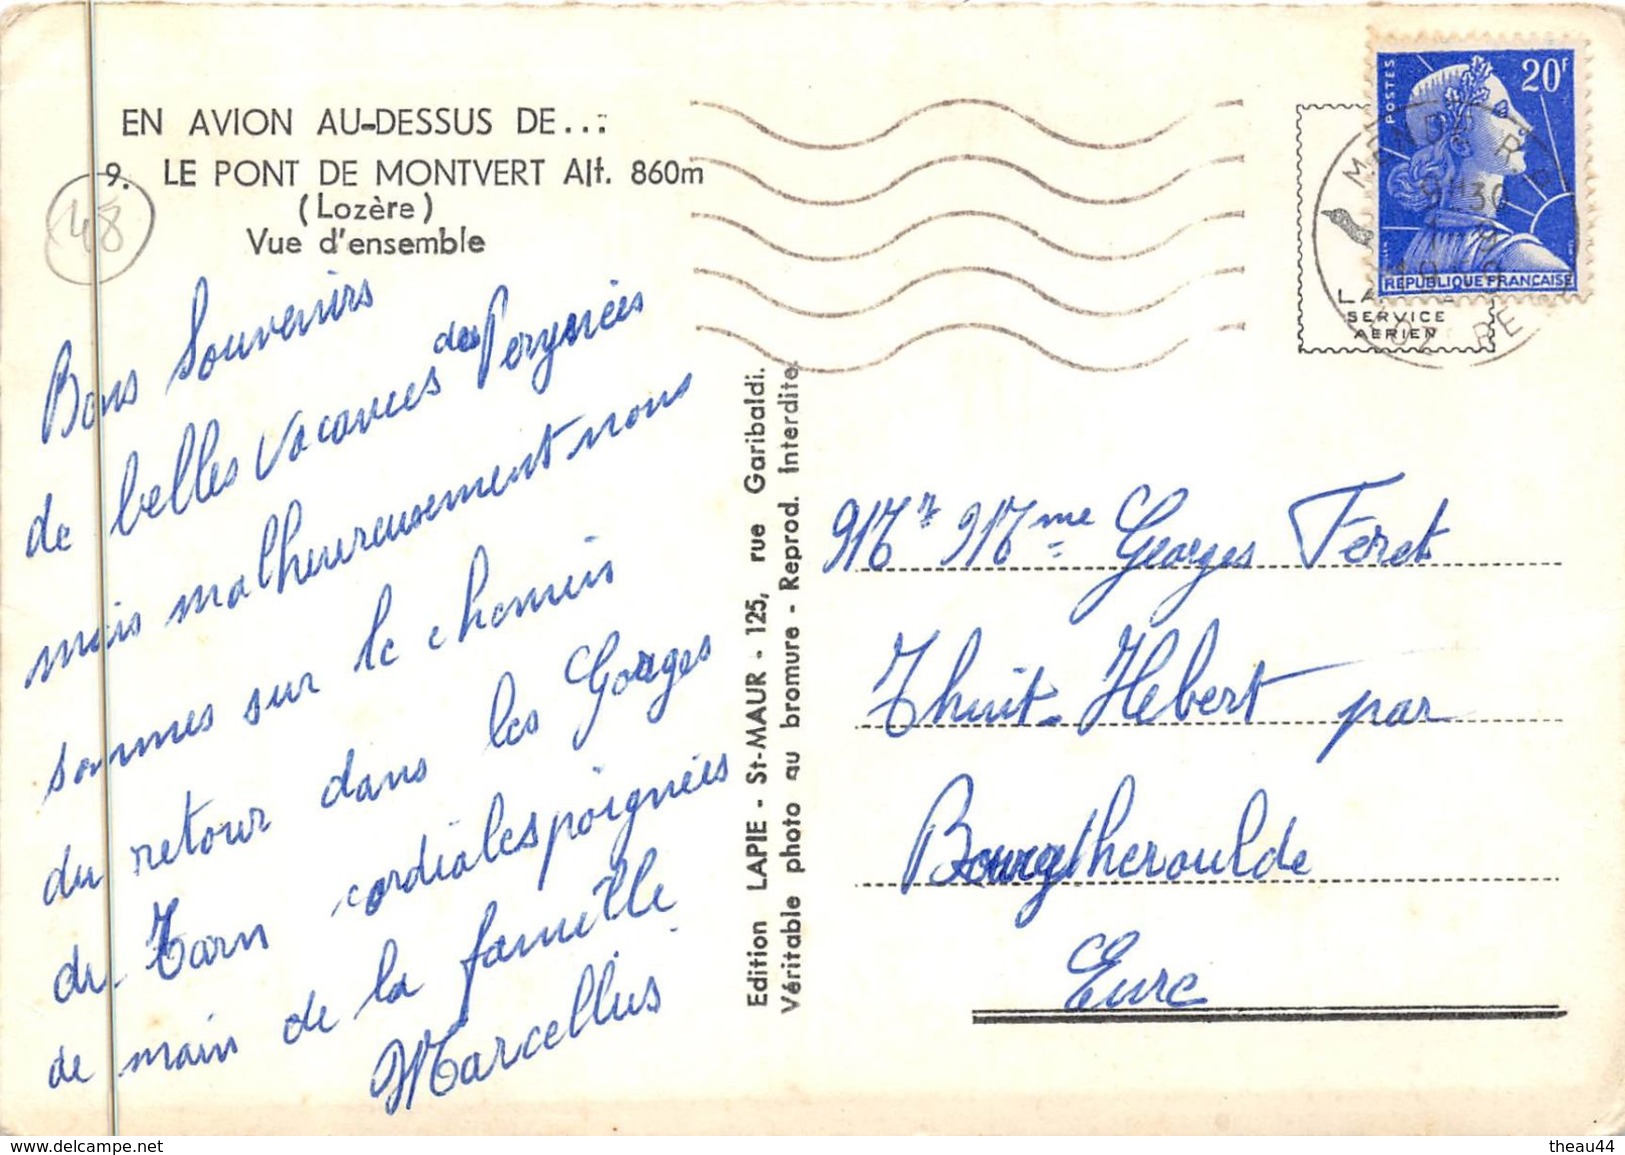 EN AVION AU-DESSUS DE...
9. LE PONT DE MONTVERT Alt. 860m
(Lozère)
Vue d'ensemble
48
Bons Souvenirs
de belles vacances des Perynées
mais malheureusement nous
sommes sur le chemin
du retour dans les Gorges
du Tarn cordiales poignées
de main de la famille
Marcellus
Edition LAPIE - St-MAUR - 125, rue Garibaldi.
Véritable photo au bromure - Reprod. Interdite.
POSTES
20F
REPUBLIQUE FRANÇAISE
MENDE R.P.
9H30
SERVICE
AERIEN
Mr Mme Georges Feret
Thuit-Hebert par
Bourgtheroulde
Eure
www.delcampe.net
theau44